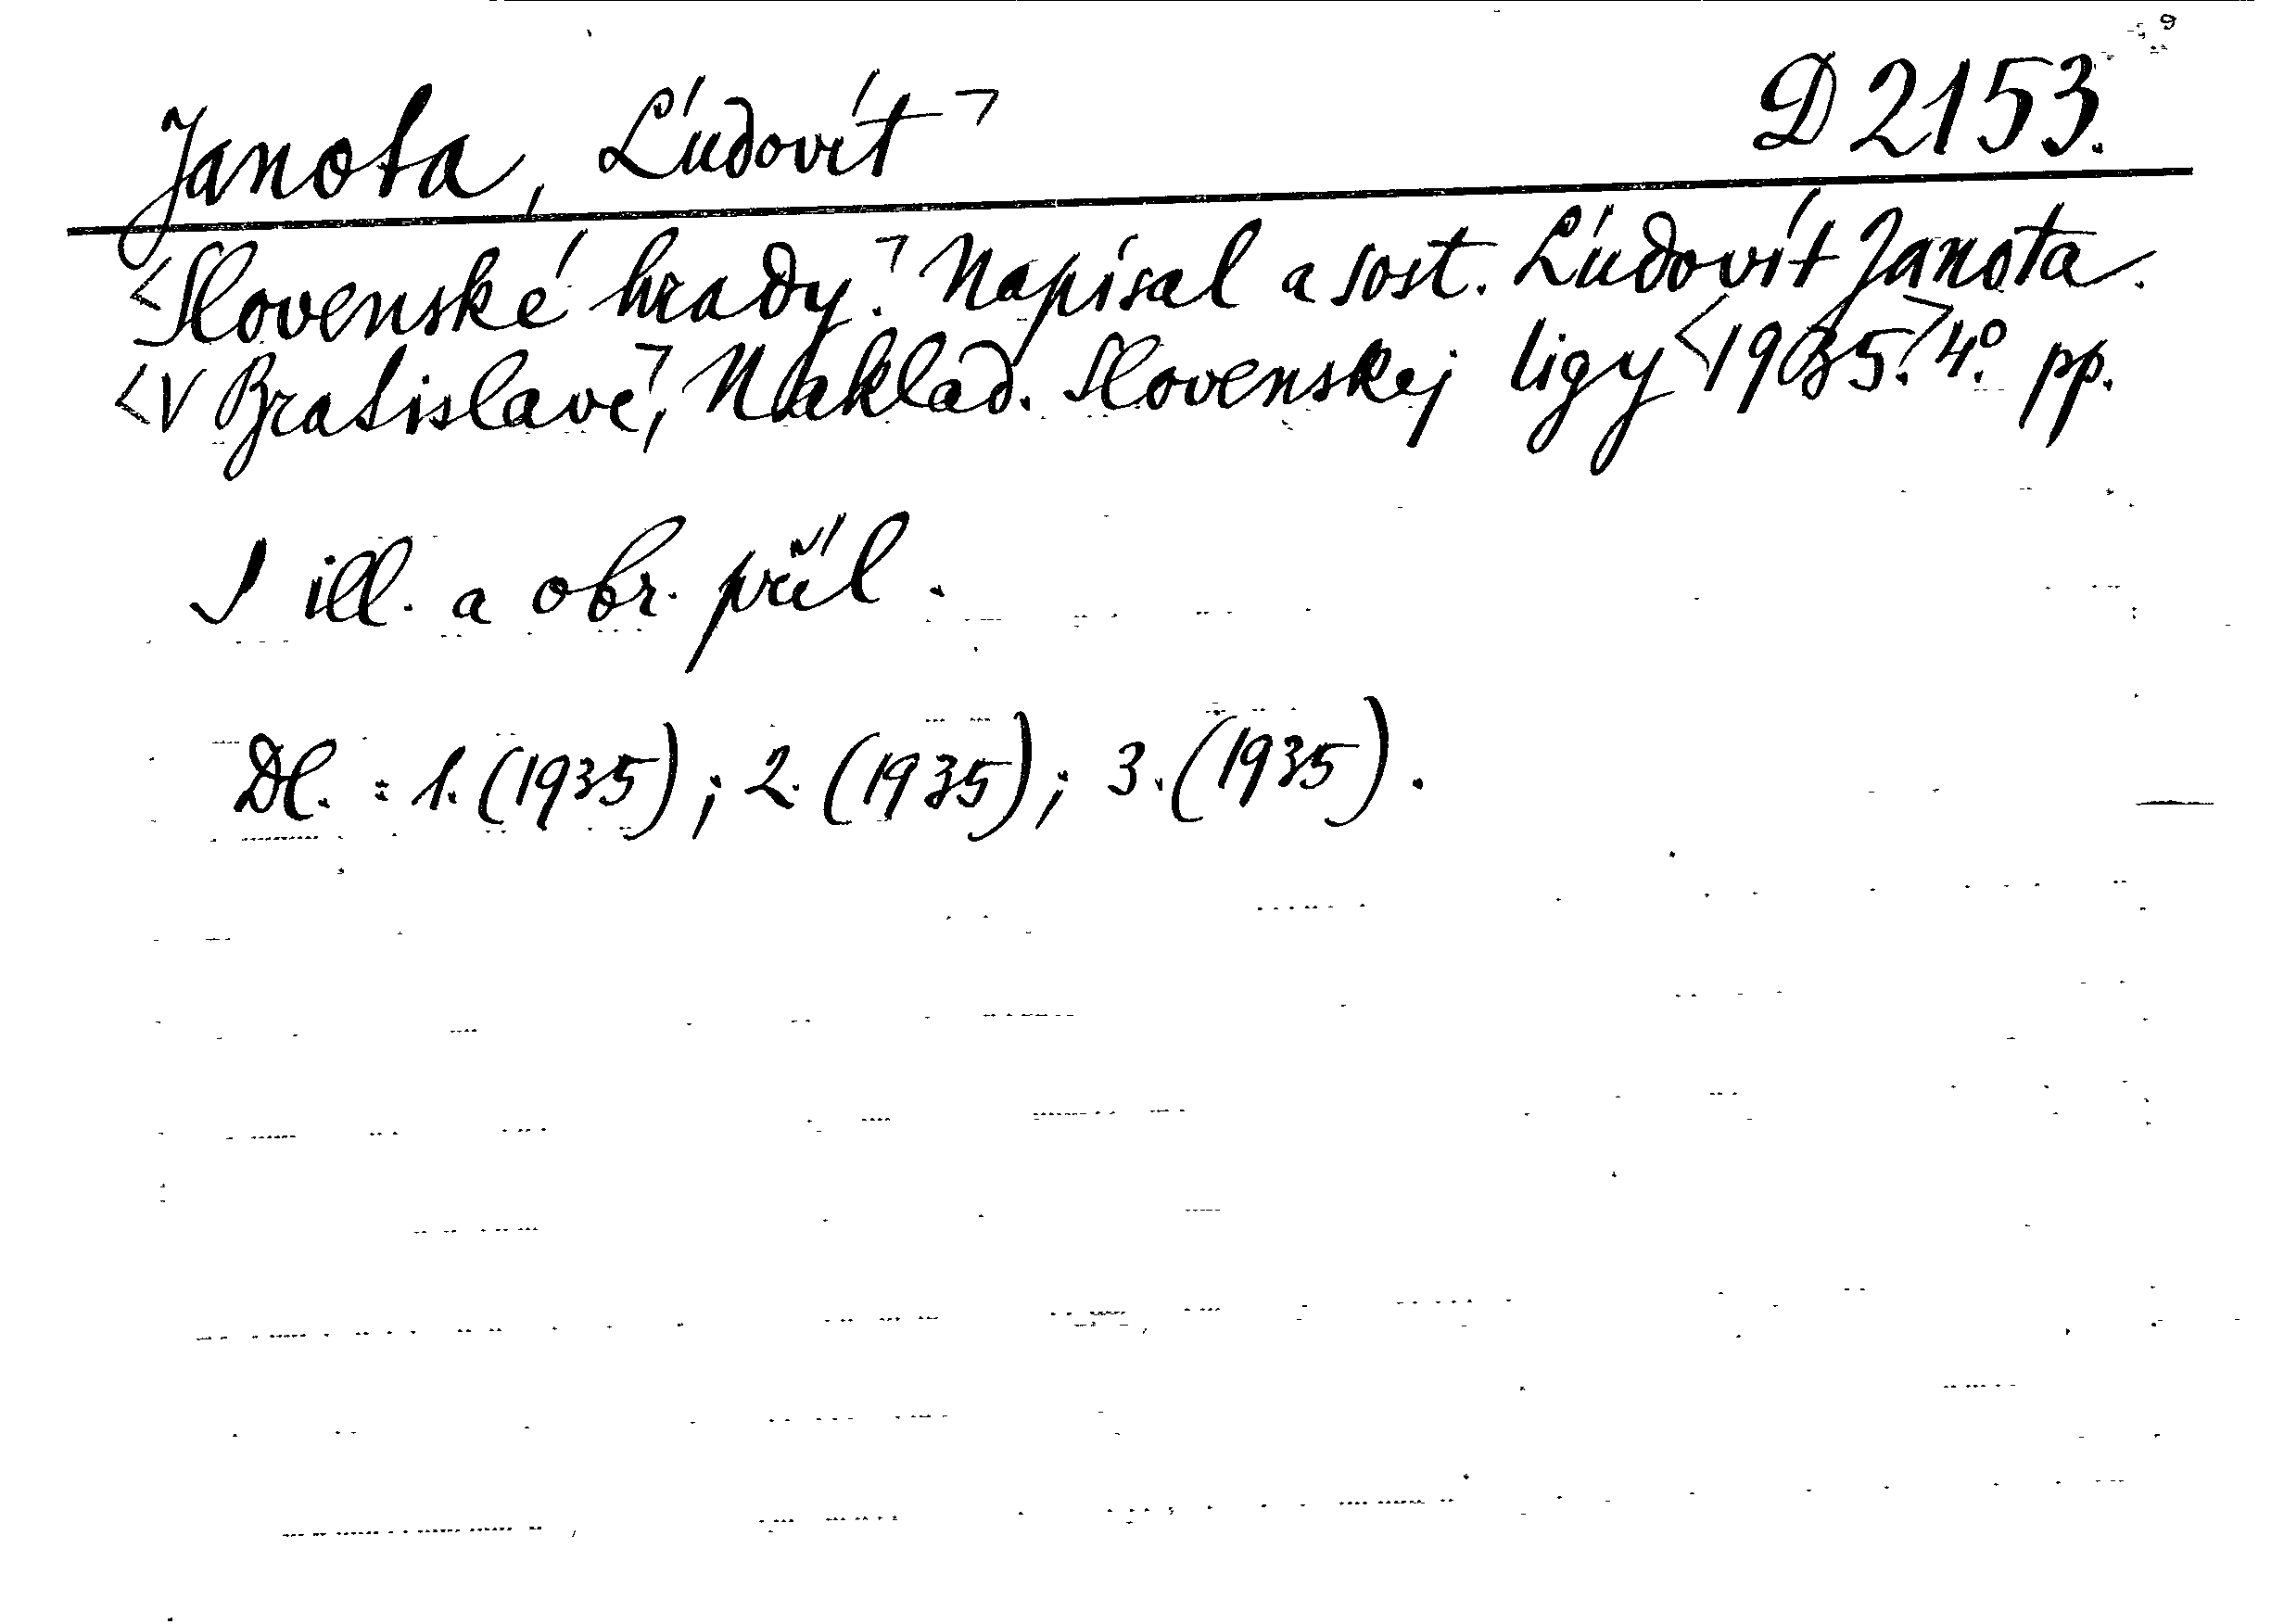 Janota, Ľudovít ¬ D 2153.
<Slovenské hrady.¬ Napísal a sost. Ľudovít Janota.
<V Bratislavě,¬ Naklad. Slovenskej ligy <1935.> 4.° pp.
S ill. a obr. příl.
Dl. : 1. (1935) ; 2. (1935) ; 3. (1935).